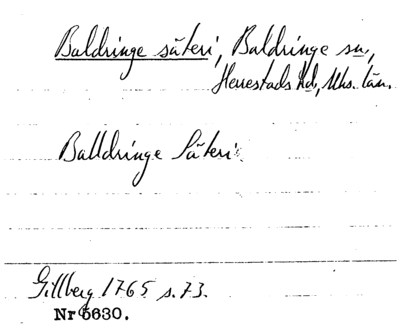 Baldringe säteri, Baldringe sn,
Herrestads hd, Mhs. län.
Balldringe Säteri
Gillberg 1765 s. 73.
Nr 6630.